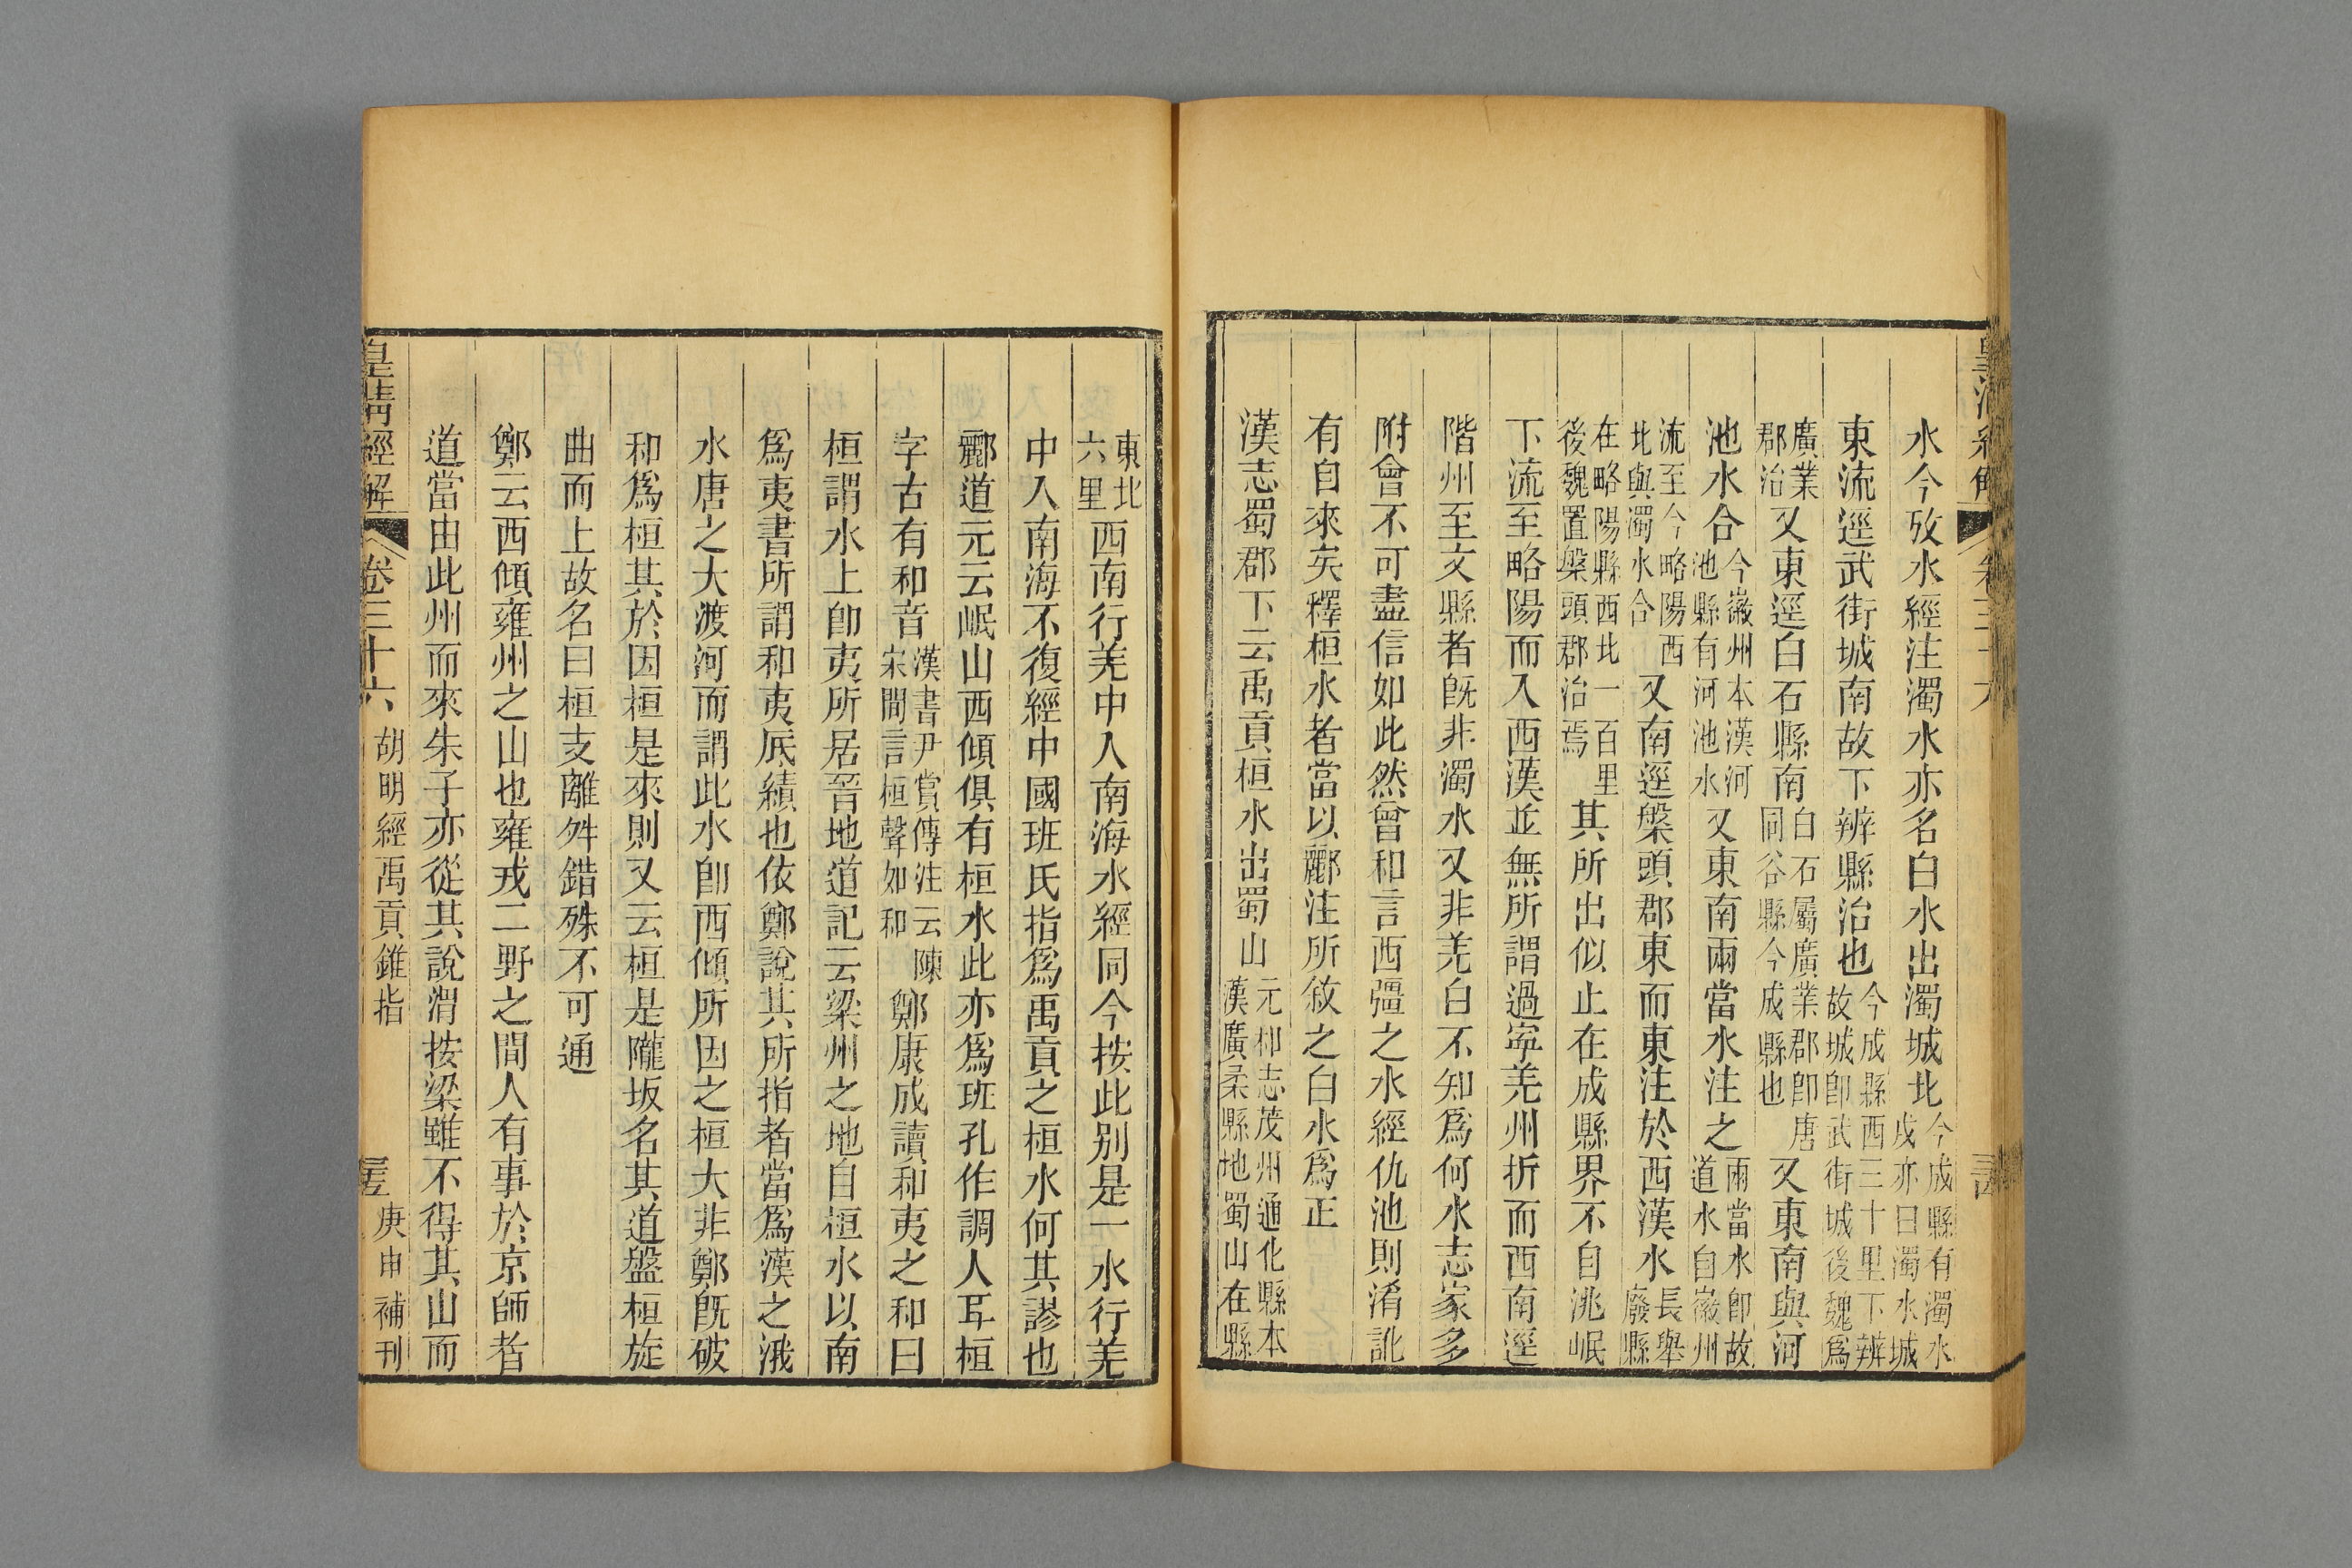 皇清經解 卷三十六
水今攷水經注濁水亦名白水出濁城北今成縣有濁水戍亦曰濁水城
東流逕武街城南故下辨縣治也今成縣西三十里下辨故城卽武街城後魏爲
廣業郡治又東逕白石縣南白石屬廣業郡卽唐同谷縣今成縣也又東南與河
池水合今徽州本漢河池縣有河池水又東南兩當水注之兩當水卽故道水自徽州
流至今略陽西北與濁水合又南逕槃頭郡東而東注於西漢水長舉廢縣
在略陽縣西北一百里後魏置槃頭郡治焉其所出似止在成縣界不自洮岷
下流至略陽而入西漢並無所謂過寧羌州折而西南逕
階州至文縣者旣非濁水又非羌白不知爲何水志家多
附會不可盡信如此然曾和言西彊之水經仇池則淆訛
有自來矣釋桓水者當以酈注所敘之白水爲正
漢志蜀郡下云禹貢桓水出蜀山元和志茂州通化縣本漢廣柔縣地蜀山在縣
東北六里西南行羌中入南海水經同今按此別是一水行羌
中入南海不復經中國班氏指爲禹貢之桓水何其謬也
酈道元云岷山西傾俱有桓水此亦爲班孔作調人耳桓
字古有和音漢書尹賞傳注云陳宋間言桓聲如和鄭康成讀和夷之和曰
桓謂水上卽夷所居晉地道記云梁州之地自桓水以南
爲夷書所謂和夷厎績也依鄭說其所指者當爲漢之涐
水唐之大渡河而謂此水卽西傾所因之桓大非鄭旣破
和爲桓其於因桓是來則又云桓是隴坂名其道盤桓旋
曲而上故名曰桓支離舛錯殊不可通
鄭云西傾雍州之山也雍戎二野之間人有事於京師者
道當由此州而來朱子亦從其說渭按梁雖不得其山而
皇清經解 卷三十六 胡明經禹貢錐指 庚申補刊